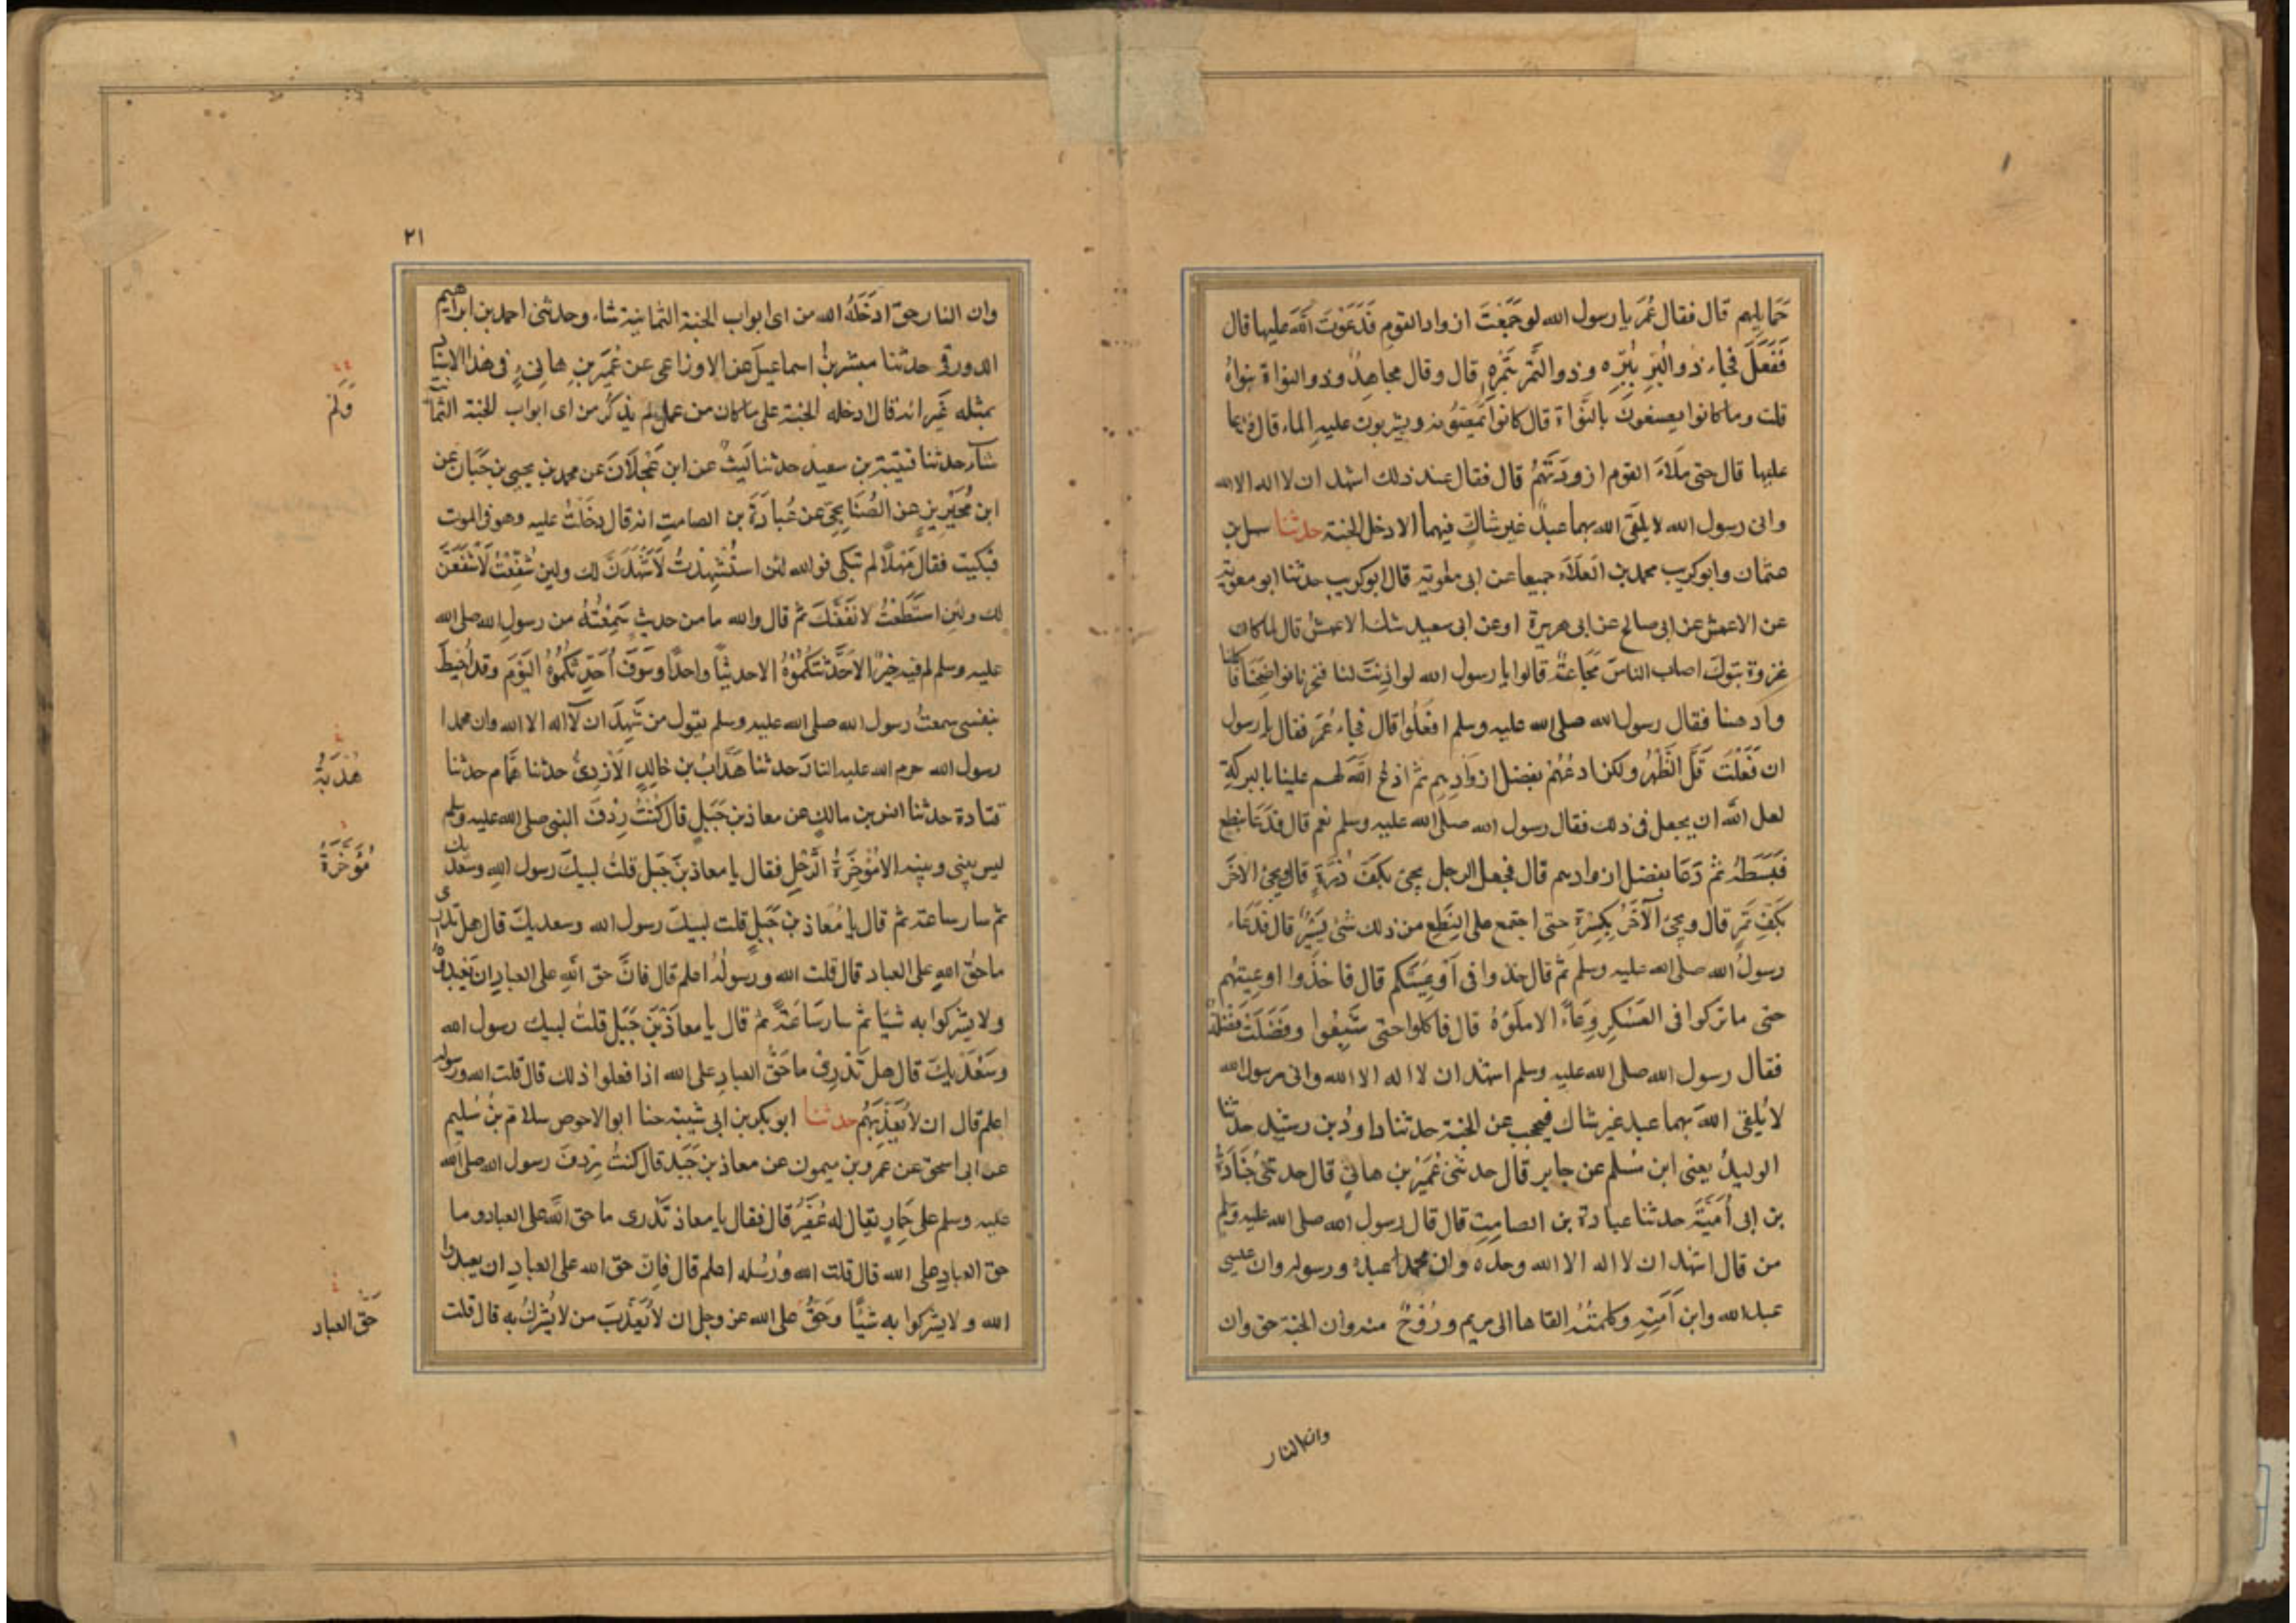 حَمَايِلِهِم قال فقال عُمَر يا رسول الله لو جَمَعْتَ ازواد القوم فَدَعَوْتَ اللهَ عليها قال
فَفَعَلَ فجاء ذو البُرِّ بِبُرِّه وذو التَّمْرِ بِتَمْرِهِ قال وقال مجاهدٌ وذو النواة بنواهُ
قلت وما كانوا يصنعون بالنَّواة قال كانوا يَمُصُّونه ويشربون عليه الماء قال فدعا
عليها قال حتى مَلَاءَ القوم ازودَتَهُم قال فقال عند ذلك اشهد ان لا اله الا الله
وانى رسول الله لا يلقَى الله بهما عبدٌ غير شاكٍّ فيهما الا دخل الجنة حدثنا سهل بن
عثمان وابو كريب محمد بن العَلَاء جميعا عن ابى معوية قال ابو كريب حدثنا ابو معوية
عن الاعمش عن ابى صالح عن ابى هريرة او عن ابى سعيد شك الاعمش قال لما كان
غزوة تبوك اصاب الناسَ مَجَاعةٌ قالوا يا رسول الله لو اذِنتَ لنا فنحرنا نواضِحَنَا فاكلنا
وادهنا فقال رسول الله صلى الله عليه وسلم افعَلُوا قال فجاء عُمَر فقال يا رسول
ان فَعَلْتَ قَلَّ الظَّهْرُ ولكن ادعُهُمْ بفضل ازوَادِهِم ثم ادعُ اللهَ لهم عليها بالبركةِ
لعل الله ان يجعل فى ذلك فقال رسول الله صلى الله عليه وسلم نعم قال فدَعَا بنطع
فَبَسَطَهُ ثم دَعَا بفضل ازوادهم قال فجعل الرجل يجئ بكفّ ذُرَةٍ قال ويجئ الآخَر
بكفِّ تَمْرٍ قال ويجئ الآخَرُ بكِسْرَةٍ حتى اجتمع على النِطَعِ من ذلك شئ يَسِيْرٌ قال فدَعَاء
رسولُ الله صلى الله عليه وسلم ثم قال خذوا فى اَوْعِيَتِكم قال فاخَذُوا اوعِيتهُم
حتى ما تركوا فى العَسْكَرِ وِعَاءً الا ملَؤُهُ قال فاكلوا حتى شَبِعُوا وفَضَلَتْ فَضْلَةٌ
فقال رسول الله صلى الله عليه وسلم اشهد ان لا اله الا الله وانى رسول الله
لا يُلقى اللهَ بهما عبد غير شاك فيحجب عن الجنة حدثنا داودُ بن رشيد حدثنا
الوليدُ يعنى ابن مُسلم عن جابر قال حدثنى عُمَيْرُ بن هانئٍ قال حدثنى جُنَادَةُ
بن ابى اُمَيَّةَ حدثنا عبادة بن الصامِتِ قال قال رسول الله صلى الله عليه وسلم
من قال اشهد ان لا اله الا الله وحده وان محمدا عبده ورسوله وان عيسى
عبد الله وابن اَمَتِهِ وكلمتُهُ القاها الى مريم ورُوْحٌ منه وان الجنة حق وان
وان النار
٢١
وان النار حق ادخَلَهُ الله من اى ابواب الجنة الثمانية شاء وحدثنى احمد بن ابراهيم
الدورقى حدثنا مبشر بنُ اسماعيلَ عن الاوزاعى عن عُمَيرِ بنِ هانِىءٍ فى هذا الاسناد
بمثله غَير انه قال ادخله الجنة على ما كان من عملٍ لم يذكُر من اى ابواب الجنة الثمانية
شاء حدثنا قتيبة بن سعيد حدثنا لَيثٌ عن ابن عَجْلَانَ عن محمد بن يحيى بن حَبَّان عن
ابن مُحَيْرِيزٍ عن الصُنَابِحِيّ عن عُبادَةَ بن الصامتِ انه قال دخَلتُ عليه وهو فى الموت
فبكيت فقال مَهْلًا لم تبكى فو الله لئن استُشْهِدْتُ لَاَشْهَدَنَّ لك ولين شُفِّعْتُ لَاَشْفَعَنَّ
لك ولئِن استَطَعْتُ لانفَعَنَّكَ ثم قال والله ما من حديثٍ سَمِعْتُهُ من رسولِ الله صلى الله
عليه وسلم لم فيه خيرٌ الا حَدَّثتكُمُوْهُ الا حديثًا واحدًا وسَوفَ اُحَدِّثُكُمُوْهُ اليَوْمَ وقد اُحيطَ
بنفسى سمعتُ رسول الله صلى الله عليه وسلم يقول من شَهِدَ ان لآ اله الا الله وان محمدا
رسول الله حرم الله عليه النارَ حدثنا هَدَّابُ بن خالِدٍ الازْدِىُّ حدثنا همّام حدثنا
قتادة حدثنا انس بن مالكٍ عن معاذ بنِ جَبَلٍ قال كنْتُ رِدْفَ النبى صلى الله عليه وسلم
ليس بينى وبينه الا مُؤْخِرَةُ الرَّحْلِ فقال يا معاذ بنَ جَبَل قلتُ لبيكَ رسول اللهِ وسعديك
ثم سار ساعة ثم قال يا مُعَاذ بنَ جَبَلٍ قلت لبيكَ رسول الله وسعديكَ قال هل تدرى
ما حقُّ اللهِ على العباد قال قلت الله ورسولُهُ اعلم قال فانَّ حق اللهِ على العبادِ ان يَعْبدوهُ
ولا يشركوا به شيًا ثم سار سَاعَةً ثم قال يا معاذَ بنَ جَبَلٍ قلتُ لبيك رسول الله
وسَعْدَيْكَ قال هل تَدْرِىْ ما حَقُّ العبادِ على الله اذا فعلوا ذلك قال قلت الله ورسوله
اعلم قال ان لا يُعَذِّبَهُمْ حدثنا ابو بكر بن ابى شيبة حنا ابو الاحوص سلام بنُ سُليم
عن ابى اسحق عن عمرو بن ميمون عن معاذ بن جَبَلٍ قال كنتُ رِدفَ رسول الله صلى الله
عليه وسلم على حِمارٍ يقال له عُفَيْرٌ قال فقال يا معاذ تَدرى ما حق اللّهِ على العباد وما
حق العبادِ على الله قال قلت الله ورُسُله اعلم قال فاِنّ حق الله على العبادِ ان يعبدوا
الله ولا يشركوا به شيًّا وحَقُّ على الله عز وجل ان لا يُعَذِّبَ من لا يُشركُ به قال قلت
وَلَمْ
هُدْبَةُ
مُؤَخَّرَةُ
حَقّ العباد